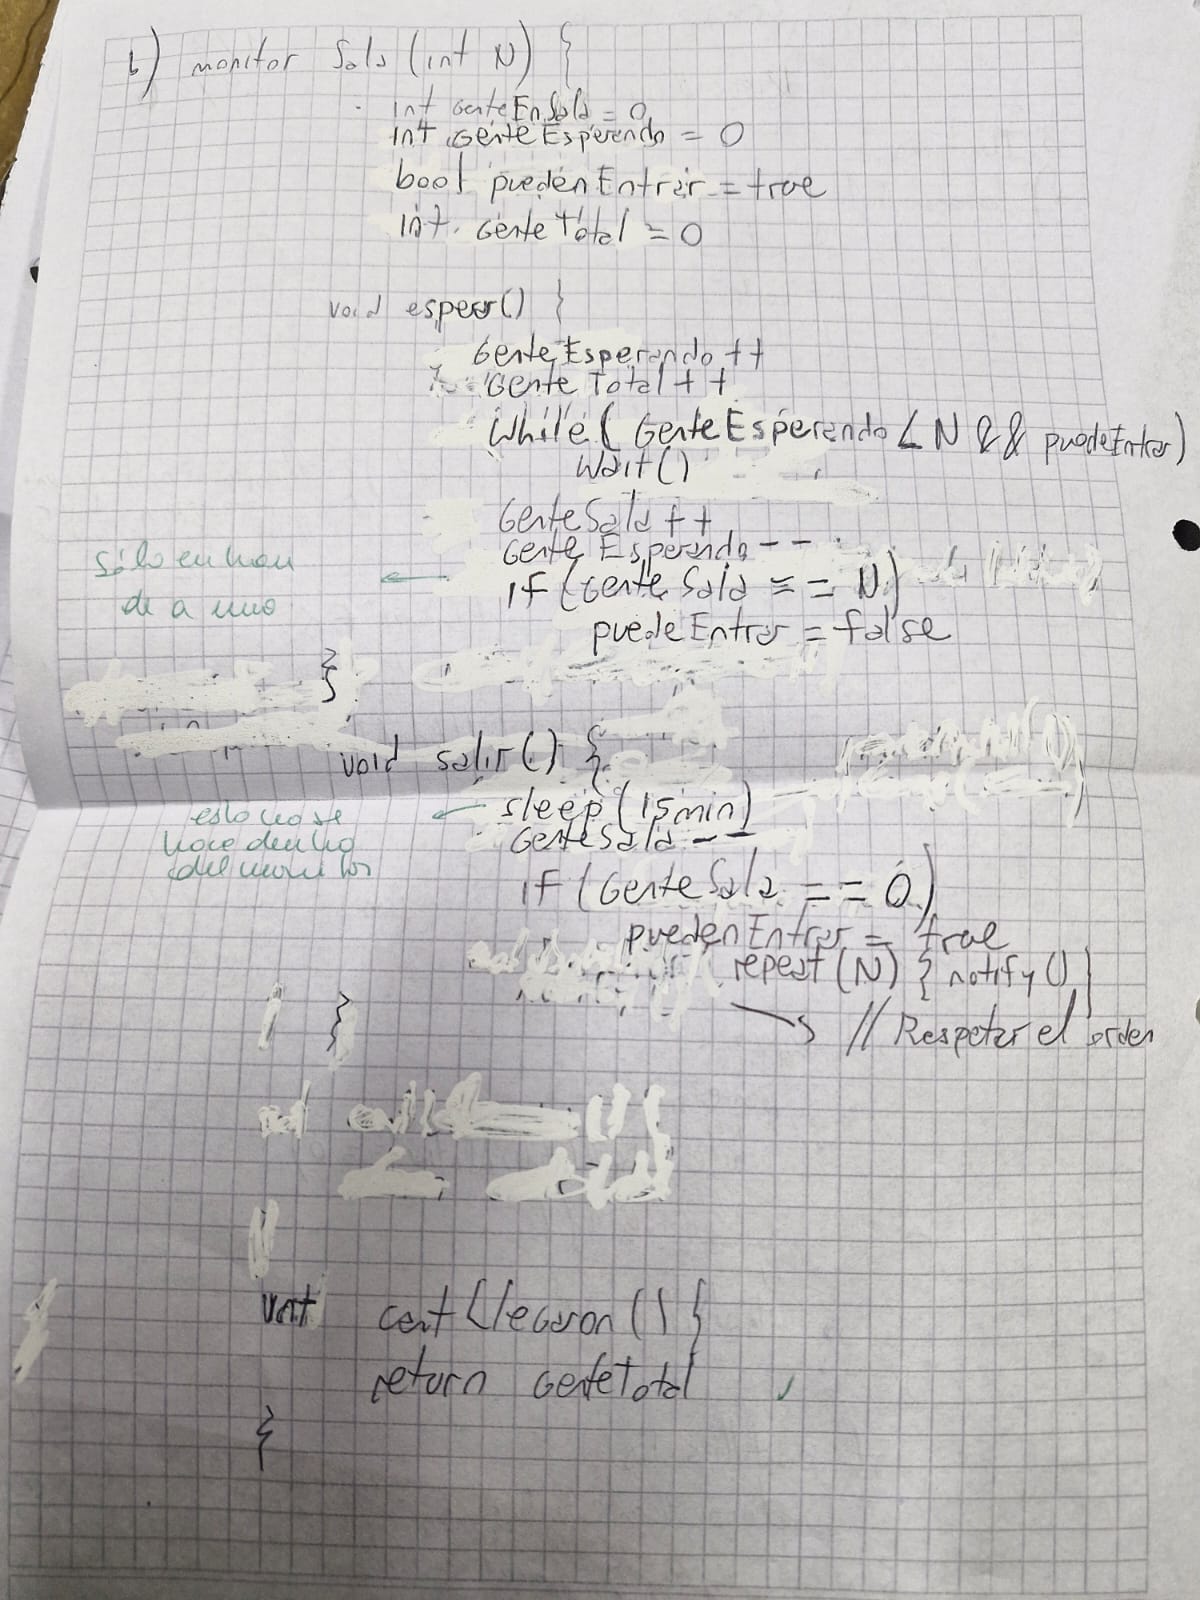 b) monitor Sala (int N) {
int GenteEnSala = 0
int GenteEsperando = 0
bool puedenEntrar = true
int GenteTotal = 0
void esperar() {
GenteEsperando ++
GenteTotal ++
While ( GenteEsperando < N && puedeEntrar)
Wait()
GenteSala ++
GenteEsperando --
if (GenteSala == N)
puedeEntrar = false
}
sólo entran
de a uno
void salir() {
sleep (15min)
GenteSala --
esto no se
hace dentro
del monitor
if (GenteSala == 0)
puedenEntrar = true
repeat (N) { notify() }
// Respetar el orden
}
cantLlegaron () {
return GenteTotal
}